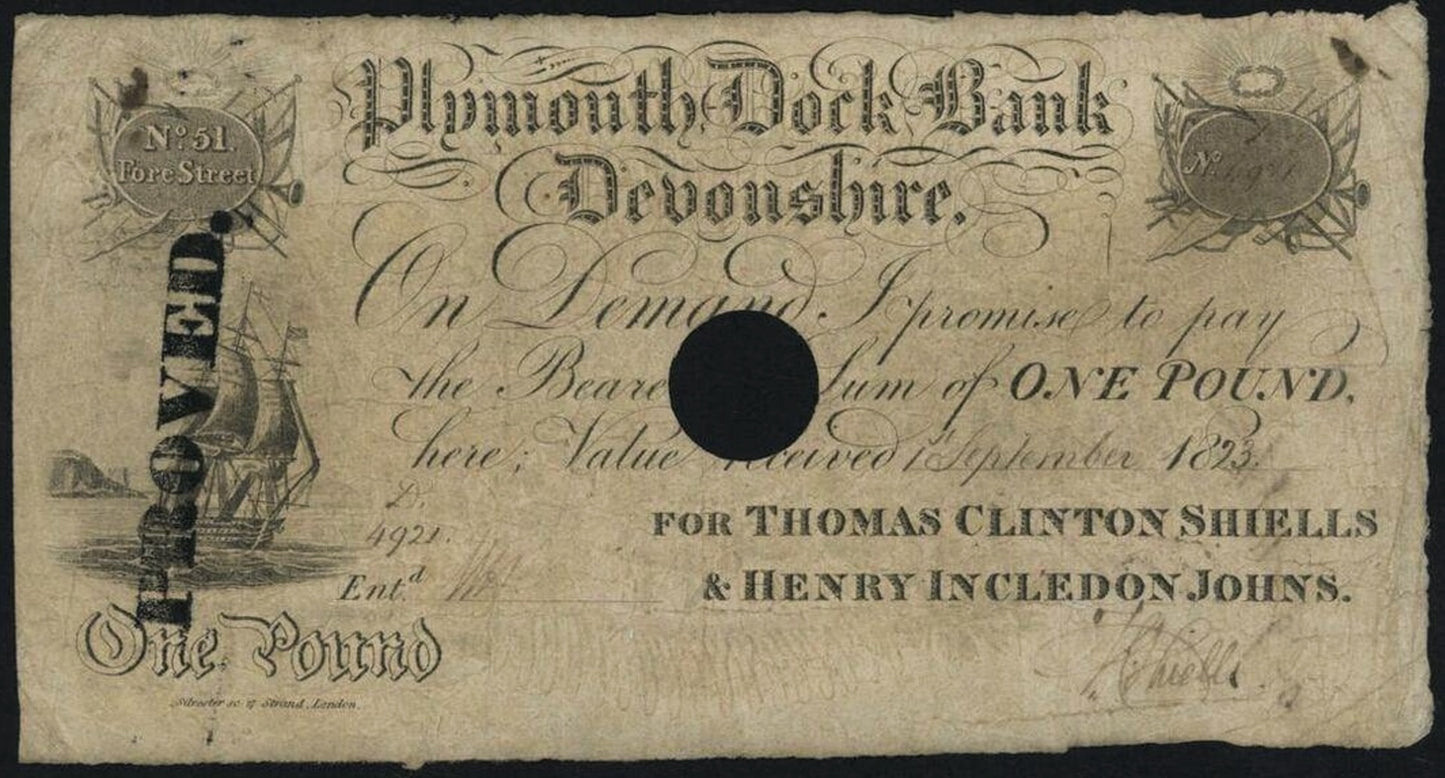 Plymouth Dock Bank
Devonshire.
No. 51.
Fore Street
No. 4921
PROVED.
On Demand I promise to pay
the Beare Sum of ONE POUND,
here; Value received 1 September 1823.
D.
4921.
FOR THOMAS CLINTON SHIELLS
& HENRY INCLEDON JOHNS.
Entd
One Pound
T C Shiells
Silvester sc. 27 Strand, London.